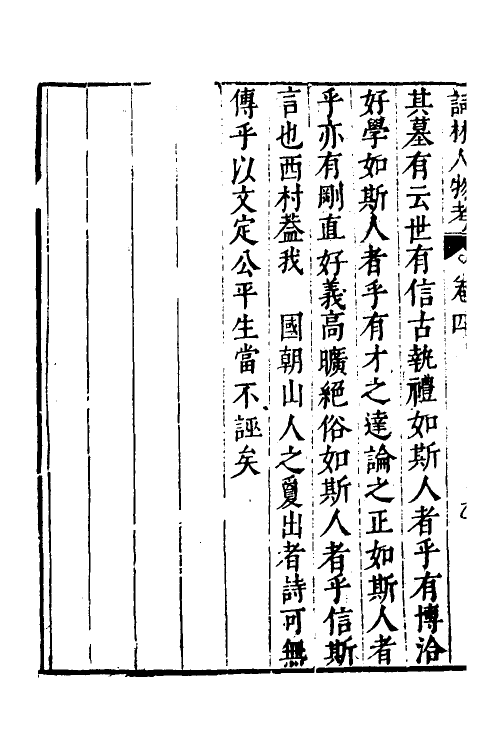 詞林人物考 卷四
其墓有云世有信古執禮如斯人者乎有博洽
好學如斯人者乎有才之達論之正如斯人者
乎亦有剛直好義高曠絕俗如斯人者乎信斯
言也西村葢我 國朝山人之夐出者詩可無
傳乎以文定公平生當不誣矣